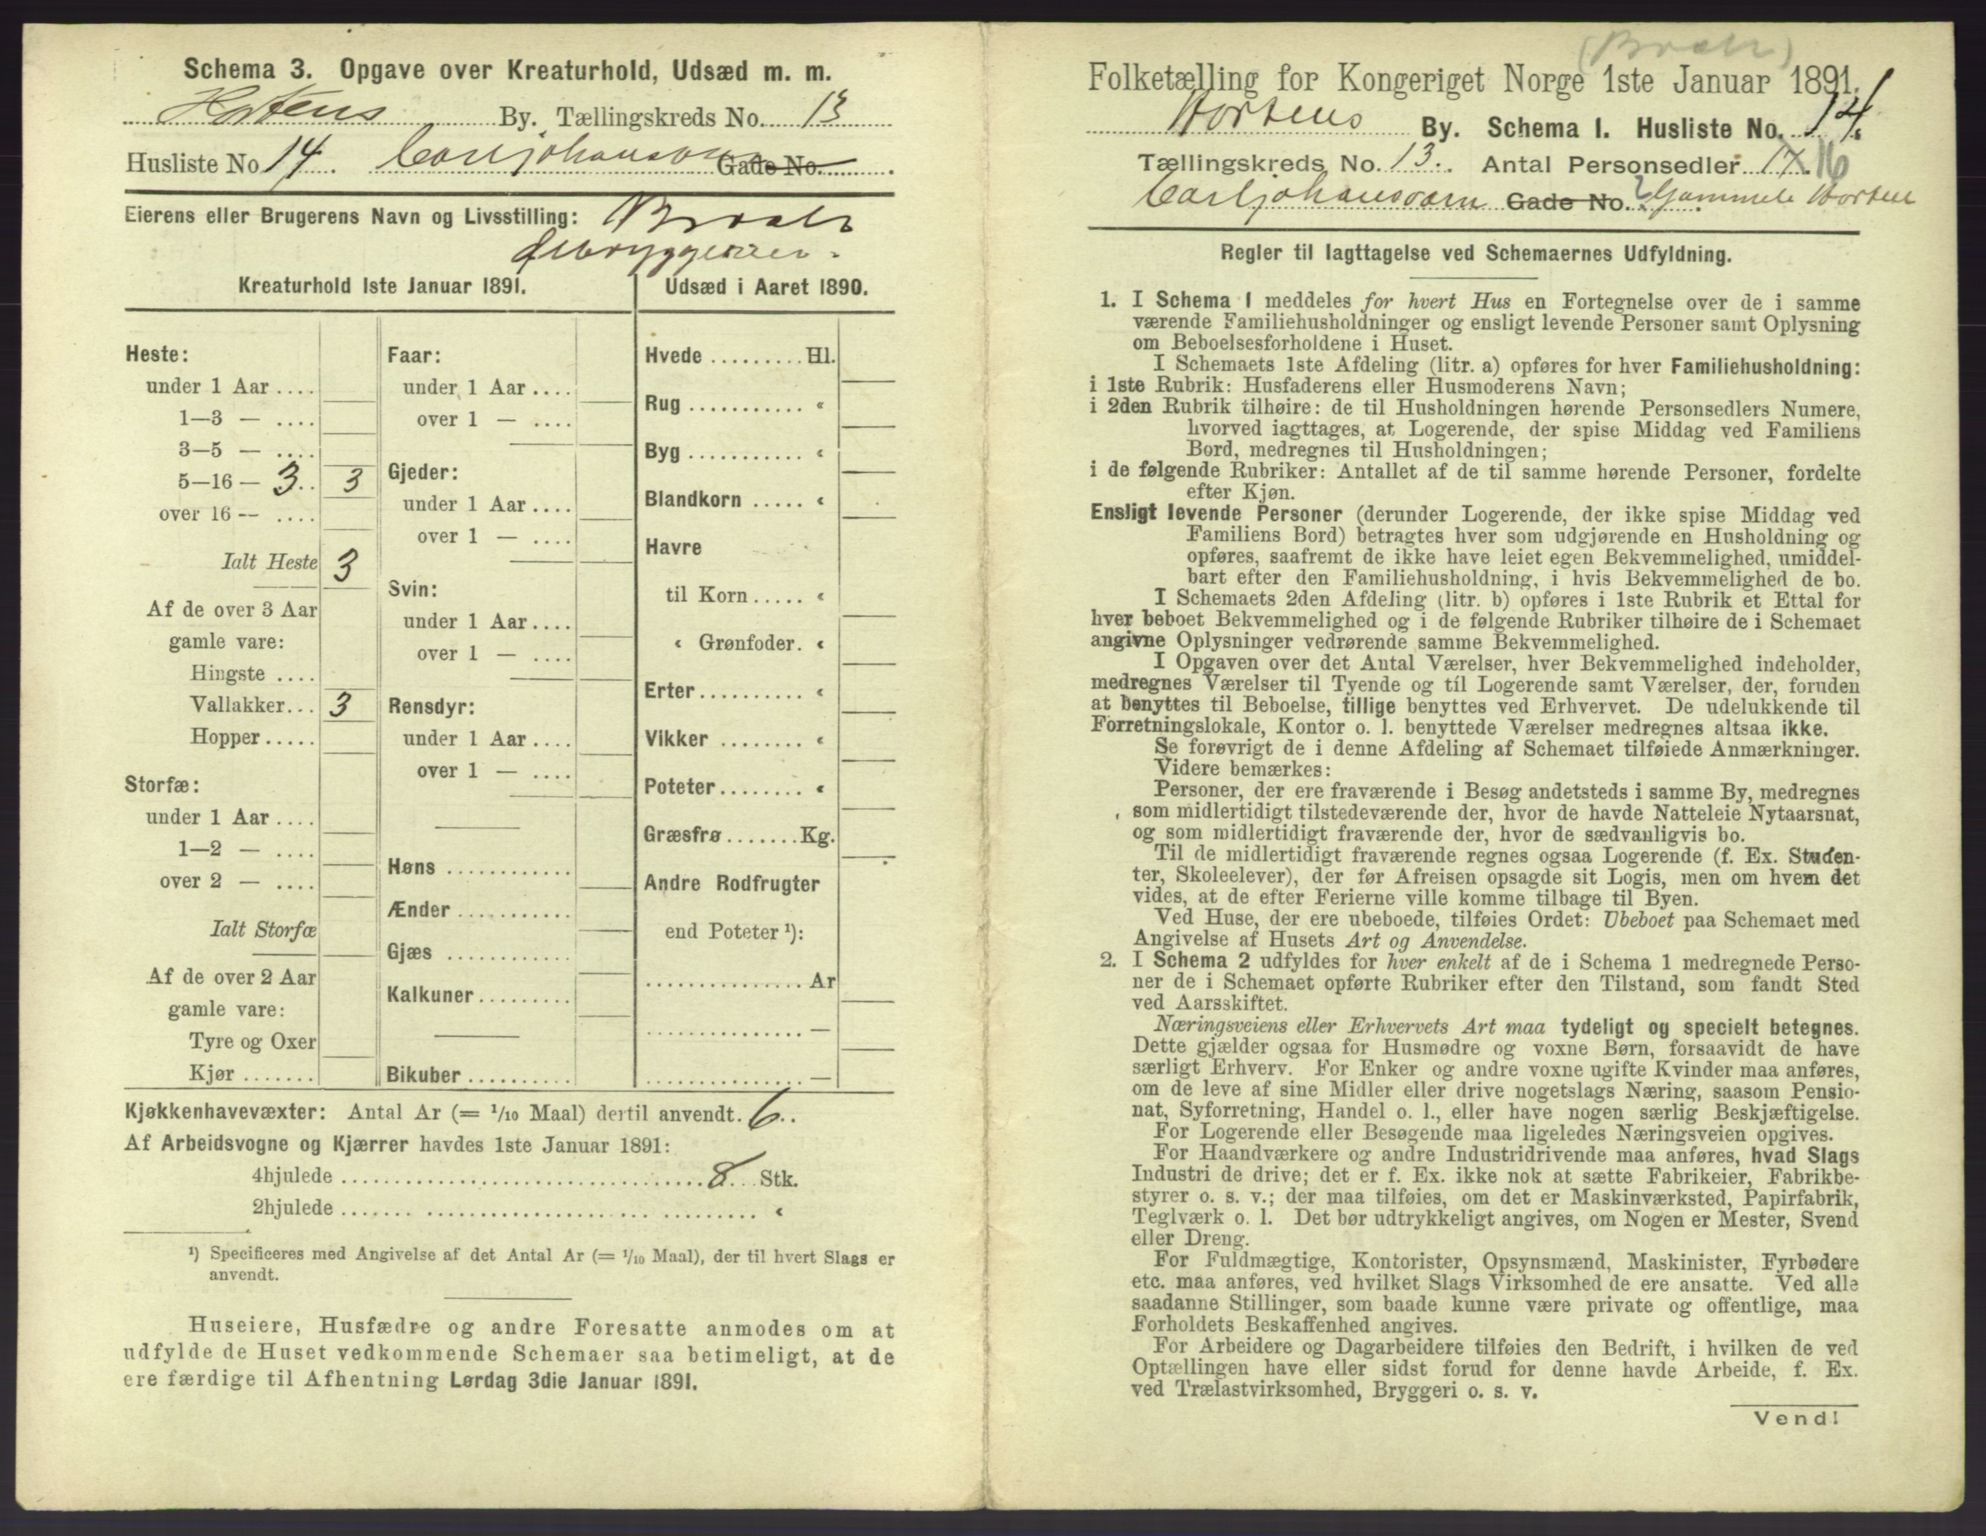 Schema 3. Opgave over Kreaturhold, Udsæd m. m.
Hortens By. Tællingskreds No. 13
Husliste No. 14. Carljohansværn Gade No.
Eierens eller Brugerens Navn og Livsstilling: Braatz
Ølbryggerier.
Kreaturhold 1ste Januar 1891.
Heste:
under 1 Aar ....
1—3 — ....
3—5 — ....
5—16 — 3.. 3
over 16 — ....
Ialt Heste 3
Af de over 3 Aar
gamle vare:
Hingste ....
Vallakker... 3
Hopper.....
Storfæ:
under 1 Aar ....
1—2 — ....
over 2 — ....
Ialt Storfæ
Af de over 2 Aar
gamle vare:
Tyre og Oxer
Kjør .......
Faar:
under 1 Aar ....
over 1 — ....
Gjeder:
under 1 Aar ....
over 1 — ....
Svin:
under 1 Aar....
over 1 — ....
Rensdyr:
under 1 Aar....
over 1 — ....
Høns ............
Ænder ...........
Gjæs ............
Kalkuner.........
Bikuber ..........
Udsæd i Aaret 1890.
Hvede .........Hl.
Rug ........... «
Byg ........... «
Blandkorn ..... «
Havre
til Korn..... «
« Grønfoder. «
Erter.......... «
Vikker ........ «
Poteter........ «
Græsfrø.......Kg.
Andre Rodfrugter
end Poteter ¹):
...............Ar
...............—
...............—
Kjøkkenhavevæxter: Antal Ar (= 1/10 Maal) dertil anvendt. 6..
Af Arbeidsvogne og Kjærrer havdes 1ste Januar 1891:
4hjulede .................................. 8... Stk.
2hjulede .................................. «
¹) Specificeres med Angivelse af det Antal Ar (= 1/10 Maal), der til hvert Slags er
anvendt.
Huseiere, Husfædre og andre Foresatte anmodes om at
udfylde de Huset vedkommende Schemaer saa betimeligt, at de
ere færdige til Afhentning Lørdag 3die Januar 1891.
(Braatz)
Folketælling for Kongeriget Norge 1ste Januar 1891.
Hortens By. Schema 1. Husliste No. 14.
Tællingskreds No. 13. Antal Personsedler 17. 16
Carljohansværn Gade No. ? Gammel Horten
Regler til Iagttagelse ved Schemaernes Udfyldning.
1. I Schema 1 meddeles for hvert Hus en Fortegnelse over de i samme
værende Familiehusholdninger og ensligt levende Personer samt Oplysning
om Beboelsesforholdene i Huset.
I Schemaets 1ste Afdeling (litr. a) opføres for hver Familiehusholdning:
i 1ste Rubrik: Husfaderens eller Husmoderens Navn;
i 2den Rubrik tilhøire: de til Husholdningen hørende Personsedlers Numere,
hvorved iagttages, at Logerende, der spise Middag ved Familiens
Bord, medregnes til Husholdningen;
i de følgende Rubriker: Antallet af de til samme hørende Personer, fordelte
efter Kjøn.
Ensligt levende Personer (derunder Logerende, der ikke spise Middag ved
Familiens Bord) betragtes hver som udgjørende en Husholdning og
opføres, saafremt de ikke have leiet egen Bekvemmelighed, umiddel-
bart efter den Familiehusholdning, i hvis Bekvemmelighed de bo.
I Schemaets 2den Afdeling (litr. b) opføres i 1ste Rubrik et Ettal for
hver beboet Bekvemmelighed og i de følgende Rubriker tilhøire de i Schemaet
angivne Oplysninger vedrørende samme Bekvemmelighed.
I Opgaven over det Antal Værelser, hver Bekvemmelighed indeholder,
medregnes Værelser til Tyende og til Logerende samt Værelser, der, foruden
at benyttes til Beboelse, tillige benyttes ved Erhvervet. De udelukkende til
Forretningslokale, Kontor o. l. benyttede Værelser medregnes altsaa ikke.
Se forøvrigt de i denne Afdeling af Schemaet tilføiede Anmærkninger.
Videre bemærkes:
Personer, der ere fraværende i Besøg andetsteds i samme By, medregnes
som midlertidigt tilstedeværende der, hvor de havde Natteleie Nytaarsnat,
og som midlertidigt fraværende der, hvor de sædvanligvis bo.
Til de midlertidigt fraværende regnes ogsaa Logerende (f. Ex. Studen-
ter, Skoleelever), der før Afreisen opsagde sit Logis, men om hvem det
vides, at de efter Ferierne ville komme tilbage til Byen.
Ved Huse, der ere ubeboede, tilføies Ordet: Ubeboet paa Schemaet med
Angivelse af Husets Art og Anvendelse.
2. I Schema 2 udfyldes for hver enkelt af de i Schema 1 medregnede Perso-
ner de i Schemaet opførte Rubriker efter den Tilstand, som fandt Sted
ved Aarsskiftet.
Næringsveiens eller Erhvervets Art maa tydeligt og specielt betegnes.
Dette gjælder ogsaa for Husmødre og voxne Børn, forsaavidt de have
særligt Erhverv. For Enker og andre voxne ugifte Kvinder maa anføres,
om de leve af sine Midler eller drive nogetslags Næring, saasom Pensio-
nat, Syforretning, Handel o. l., eller have nogen særlig Beskjæftigelse.
For Logerende eller Besøgende maa ligeledes Næringsveien opgives.
For Haandværkere og andre Industridrivende maa anføres, hvad Slags
Industri de drive; det er f. Ex. ikke nok at sætte Fabrikeier, Fabrikbe-
styrer o. s. v.; der maa tilføies, om det er Maskinværksted, Papirfabrik,
Teglværk o. l. Det bør udtrykkeligt angives, om Nogen er Mester, Svend
eller Dreng.
For Fuldmægtige, Kontorister, Opsynsmænd, Maskinister, Fyrbødere
etc. maa anføres, ved hvilket Slags Virksomhed de ere ansatte. Ved alle
saadanne Stillinger, som baade kunne være private og offentlige, maa
Forholdets Beskaffenhed angives.
For Arbeidere og Dagarbeidere tilføies den Bedrift, i hvilken de ved
Optællingen have eller sidst forud for denne havde Arbeide, f. Ex.
ved Trælastvirksomhed, Bryggeri o. s. v.
Vend!